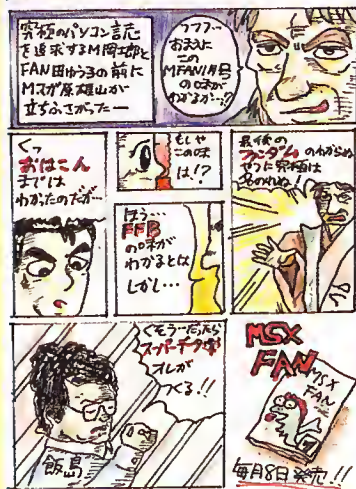 究極のパソコン誌
を追求するM岡士郎と
FAN田ゆう子の前に
Mスガ原雄山が
立ちふさがったー
フフフ…
おまえに
この
MFAN1月号
の味が
わかるか…?
くっ
おはこん
までは
わかったのだが…
もしや
この味
は!?
ほう…
FFB
の味が
わかるとは
しかし…
最後の
ファンダムのわからぬ
やつに究極は
名のれぬ!
くそうーだったら
スーパーチータ
オレが
つくる!!
飯島
MSX
FAN
MSX
FAN
毎月8日発売!!